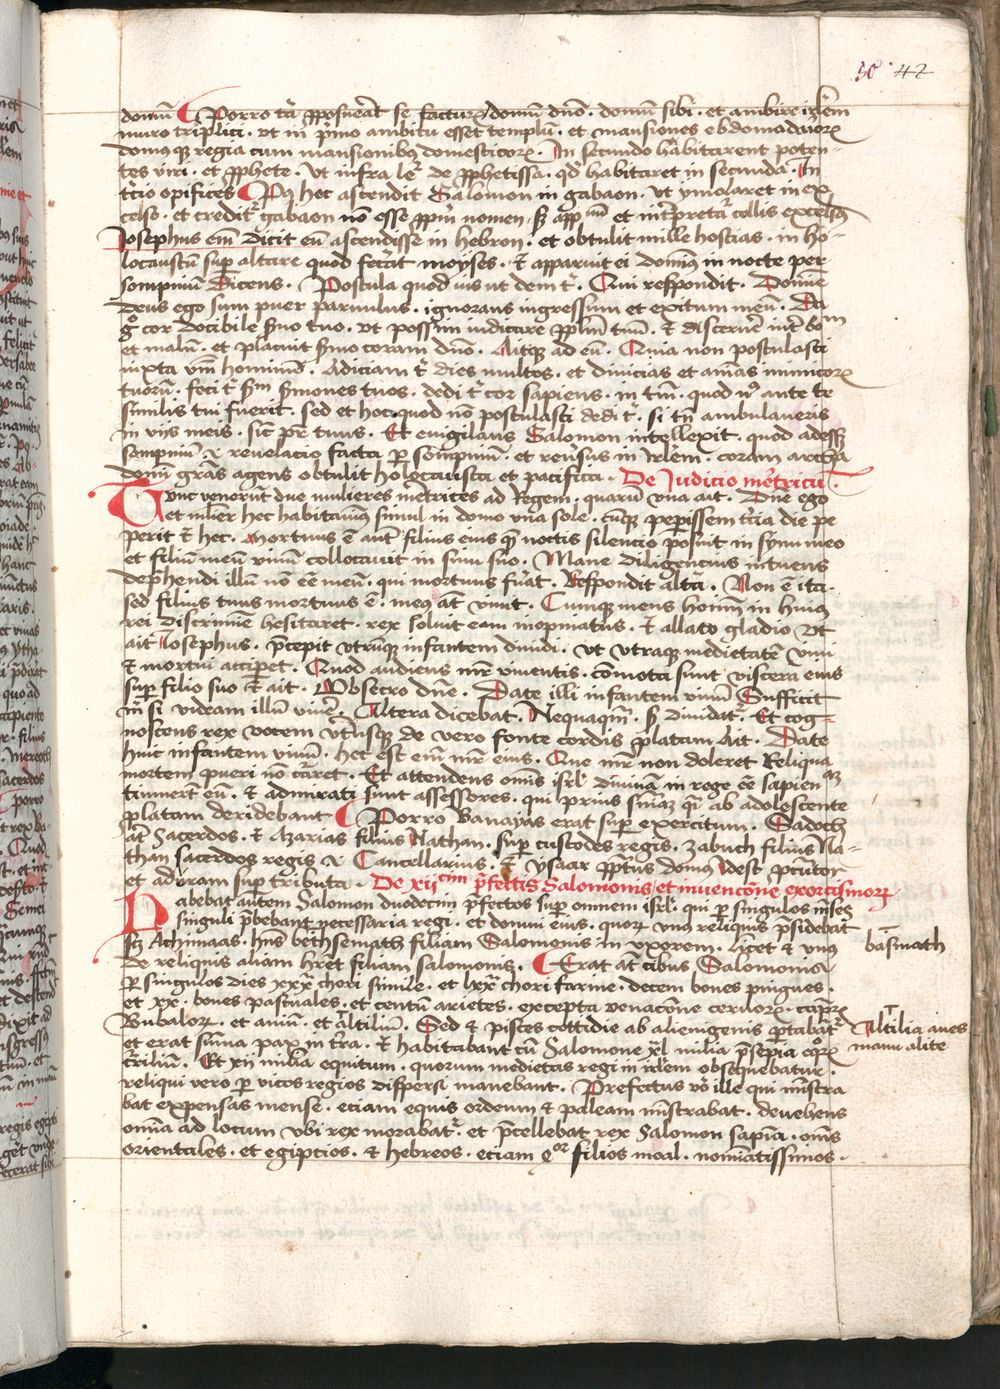 50 42
domū Porro tn̄ ꝓposuerat se facturū domū dn̄o . domū sibi . et ambire irl̄em
muro triplici . vt in p̄mo ambitu esset templū . et mansiones ebdomadarioꝝ
domusqꝫ regia cum mansionibus domesticoꝝ . In secundo habitarent poten-
tes viri . et ꝓphete . vt infra leg̃ de ꝓphetissa . qd̓ habitaret in secunda . In
t̓cio opifices Pꝰ hec ascendit Salomon in gabaon . vt ymolaret in ex
celso . et credit̃ gabaon nō esse ꝓpriū nomen . sꝫ app̄m et int̓pretat̃ collis excelsꝰ
Josephus em̄ dicit eū ascendisse in hebron . et obtulit mille hostias . in ho-
locaustū suꝑ altare quod fec̓at moyses . Et apparuit ei dominꝰ in nocte per
sompnū dicens . Postula quod vis ut dem t̓ . Qui respondit . Domine
deus ego sum puer paruulus . ignorans ingressum et exitum meū . Da
g̊ cor docibile s̓uo tuo . vt possim iudicare ppl̄m tuū . et discern̓e int̓ bonū
et malū . et placuit s̓mo coram dn̄o . Aitqꝫ ad eū . Quia non postulasti
iuxta vim̄ hominū . Adiciam t̓ dies multos . et diuicias et animas inimicoꝝ
tuorū . feci t̓ sm̄ s̓mones tuos . dedi t̓ cor sapiens . in tm̄ . quod nꝰ ante te
similis tui fuerit . sed et hoc quod nō postulasti dedi t̓ . si tn̄ ambulaueris
in vijs meis . sic̄ pr̄ tuus . Et euigilans Salomon intellexit . quod adesset
sompnū . et reuelacio facta ꝑ sompnū . et reuersus in irl̄em . coram archa
domini gr̄as agens obtulit holocausta et pacifica . De Judicio met̓ricū .
Tunc venerūt due mulieres met̓rices ad Regem . quarū vna ait . Dn̄e ego
et ml̓ier hec habitauimꝰ simul in domo vna sole . cūqꝫ peperissem t̓cia die pe
perit et hec . Mortuus ē aut̄ filius eius qꝫ noctis silencio posuit in synu meo
et filiū meū viuū collocauit in sinu suo . Mane diligencius intuens
dephendi illū nō eē meū . qui mortuus fuat . Respondit alt̓a . Non ē ita .
sed filius tuus mortuus ē . meus aūt viuit . Cumqꝫ mens hominū in huiꝰ
rei discrimine hesitaret . rex soluit eam inopinatus . et allato gladio vt
ait Josephus . p̄cepit vtrūqꝫ infantem diuidi . vt vtraqꝫ medietatē viui
et mortui acciperet . Quod audiens mr̄ viuentis . cōmota sunt viscera eius
suꝑ filio suo et ait . Obsecro dn̄e . Date illi infantem viuū Sufficit
m̓ si videam illū viuē . Altera dicebat . Nequaqm̄ . sꝫ diuidat̃ . Et cog-
noscens rex vocem vt̓usqꝫ de vero fonte cordis ꝓlatam Ait . Date
huic infantem viuū . hec est em̄ mr̄ eius . Que mr̄ non doleret Reliqua
mortem pueri nō caret . Et attendens omīs isrl̓ diuinā in rege eē sapienciā
timuerūt eū . et admirati sunt assessores . qui prius sn̄iaꝫ qͣ ab adolescente
ꝓlatam deridebant Porro Banayas erat suꝑ exercitum . Sadoch
aūt Sacerdos . et Azarias filius Nathan . suꝑ custodes regis . zabuch filius Na-
than sacerdos regis et Cancellarius . et ysaar ꝓp̄tus domus idest ꝓcurator
et aduram suꝑ tributa . De xijcim p̄fectis Salomonis et inuencōne exorcismoꝝ .
Habebat autem Salomon duodecim p̄fectos suꝑ omnem isrl̓ . qui ꝑ singulos menses
singuli p̄bebant necessaria regi . et domui eius . quoꝝ vnꝰ reliquis p̄sidebat
scꝫ Achimaas . hn̄s bethsemath filiam Salomonis in vxorem . licet et vnus
de reliquis aliam hr̄et filiam salomonis . Erat aūt cibus Salomonis
ꝑ singulos dies xxx chori simile . et lx chori farine . decem boues pingues .
et xx . boues pascuales . et centū arietes . excepta venacōne ceruoꝝ . capreaꝝ
Bubaloꝝ . et auiū . et altiliū . Sed et pisces cottidie ab alienigenis ꝑtabāt̃
et erat sum̄a pax in t̓ra . et habitabant cū Salomone xl milia p̄sepia eqoꝝ
t̓riliū . Et xij milia equitum . quorum medietas regi in irl̄em obsequebatur .
reliqui vero ꝑ vicos regios dispersi manebant . Prefectus v̊o ille qui mīstra
bat expensas mense . etiam equis ordeum et paleam mīstrabat . deuehens
omīa ad locum vbi rex morabat̃ . et p̄cellebat rex Salomon sapīa . om̄s
orientales . et egiptios . et hebreos . etiam qͦꝛ filios moal . nominatissimos .
basmath
Altilia aues
manu alite